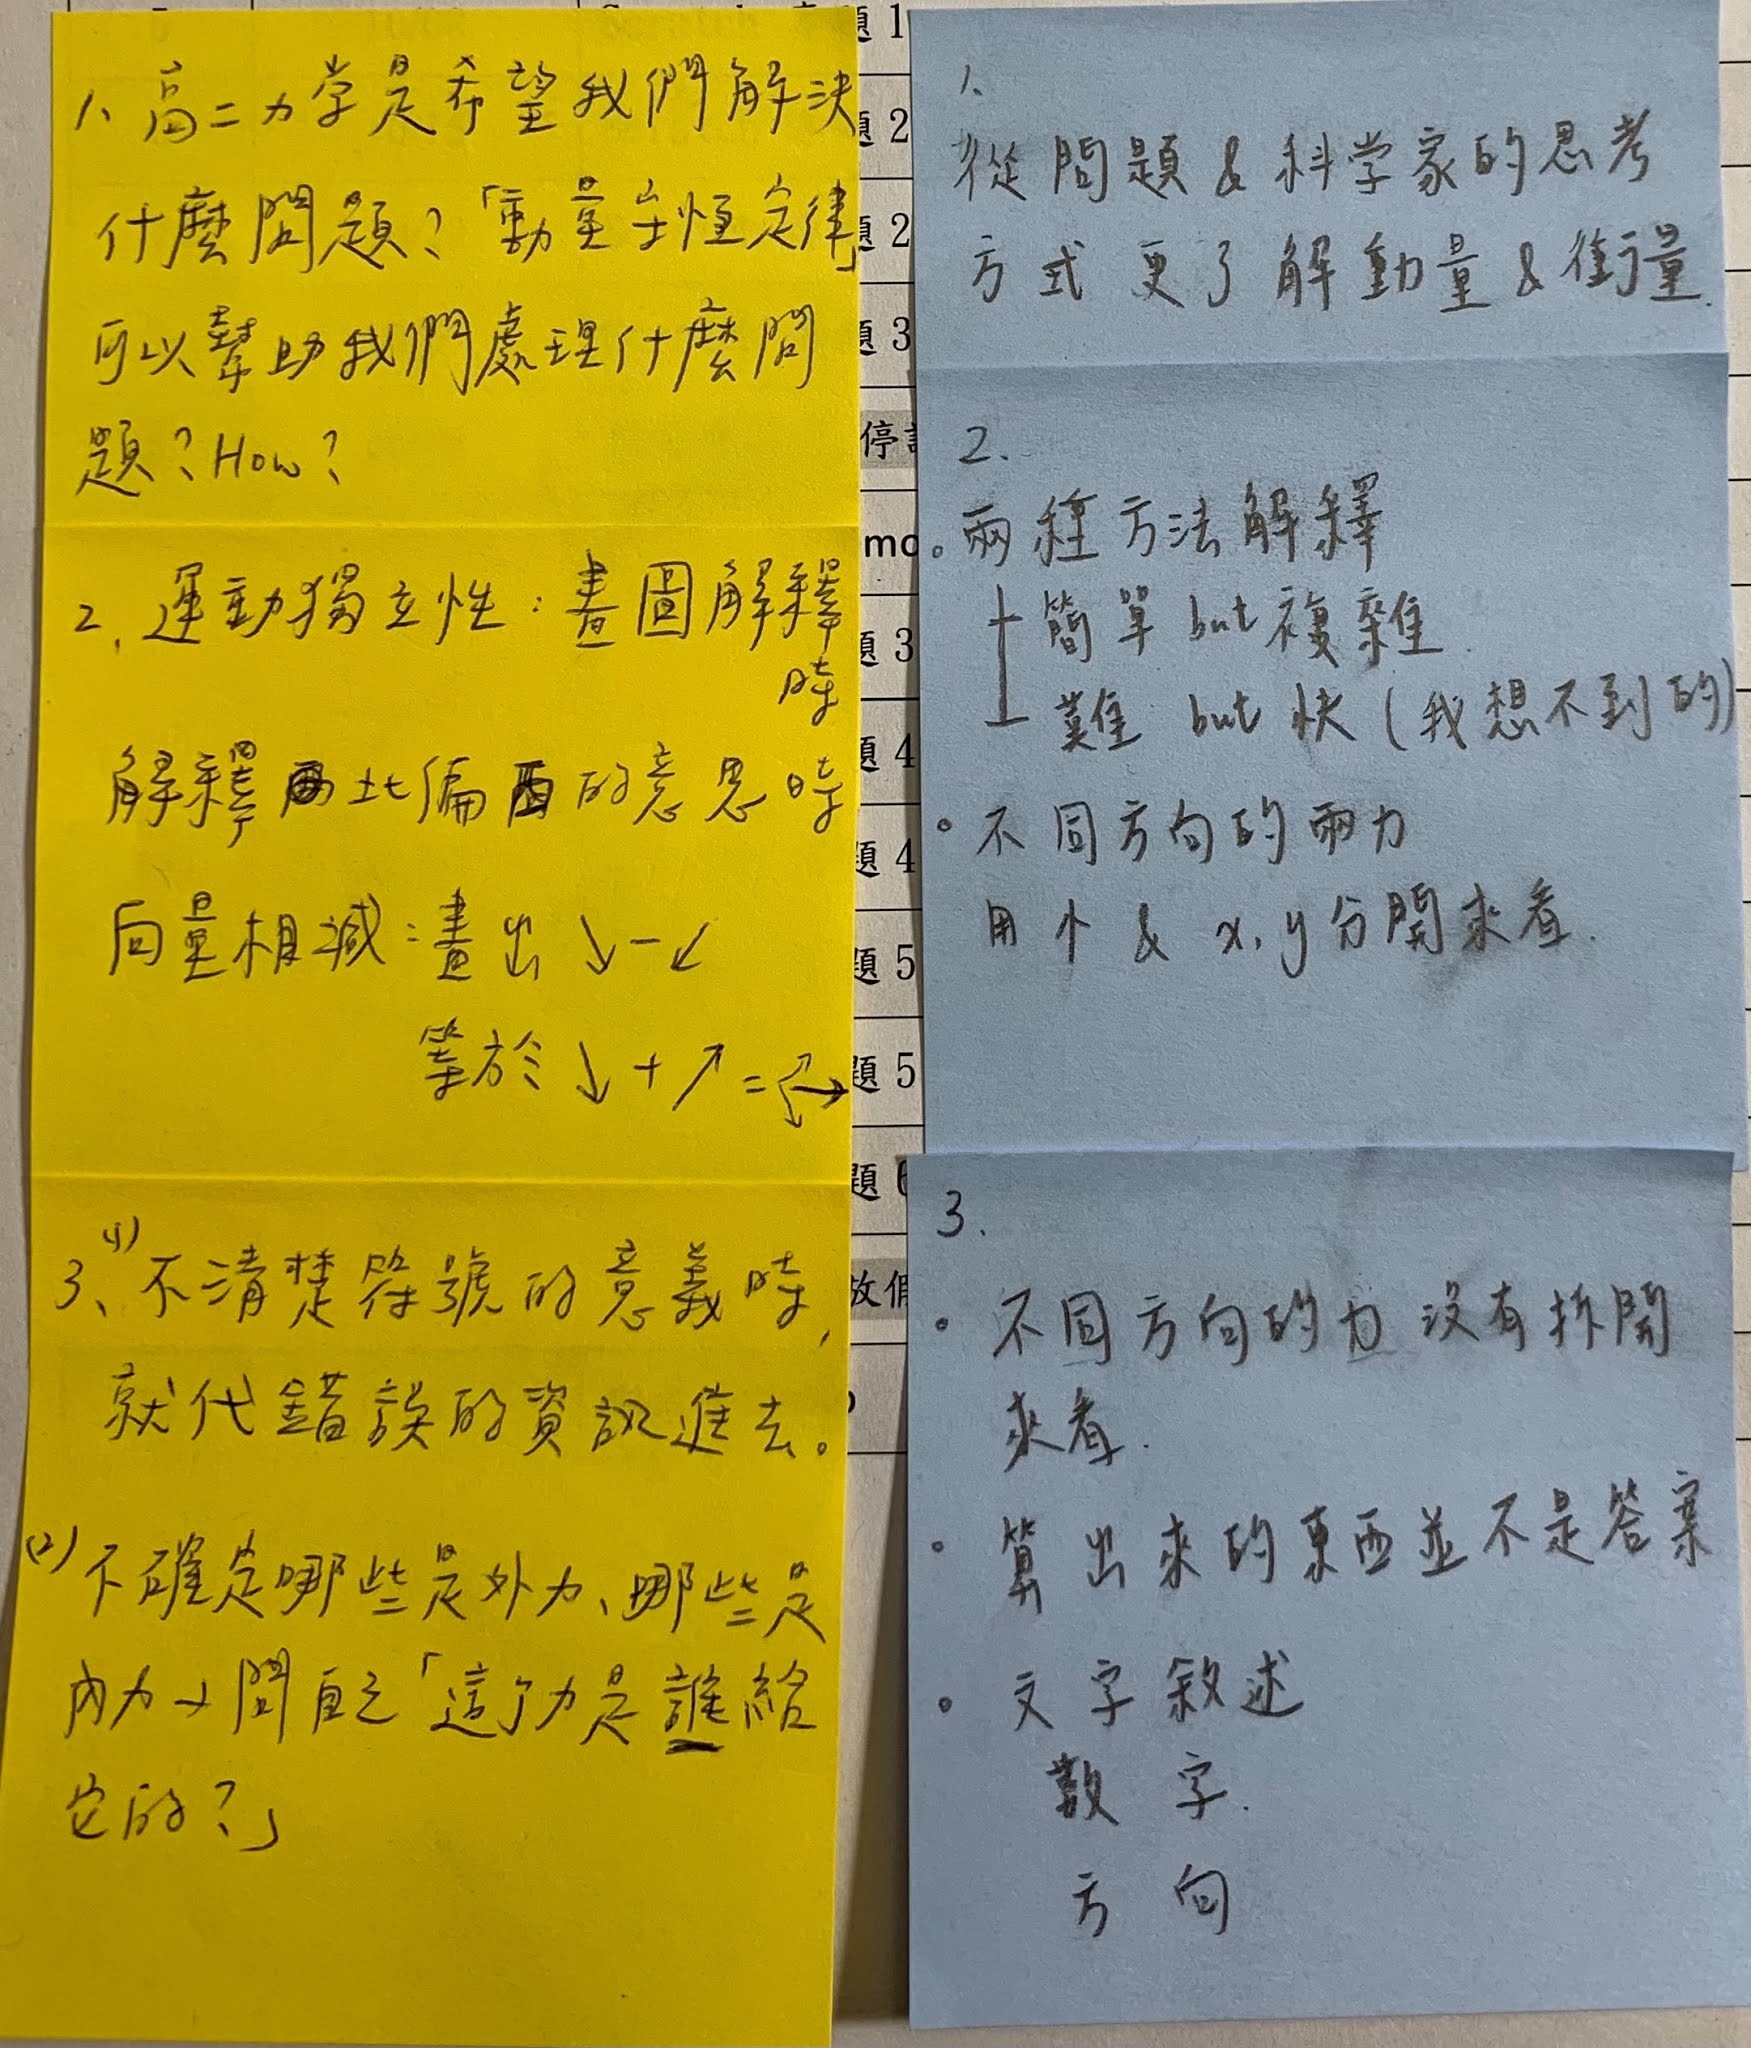 1、高二力学是希望我們解決
什麼問題？「動量守恆定律」
可以幫助我們處理什麼問
題？How？
2、運動獨立性：畫圖解釋
時
解釋 北偏西的意思時
向量相減：畫出 ↘−↙
等於 ↘+↗=→
3、(1)不清楚符號的意義時，
就代錯誤的資訊進去。
(2)不確定哪些是外力、哪些是
內力→問自己「這個力是誰給
它的？」
1、
從問題&科学家的思考
方式更了解動量&衝量.
2.
。兩種方法解釋
簡單 but 複雜.
難 but 快 (我想不到的)
。不同方向的兩力
用个 & x,y分開來看.
3.
。不同方向的力沒有拆開
來看.
。算出來的東西並不是答案
。文字敘述
數字.
方向
題 1
題 2
題 2
題 3
停
mo
題 3
題 4
題 4
題 5
題 5
題 6
放假